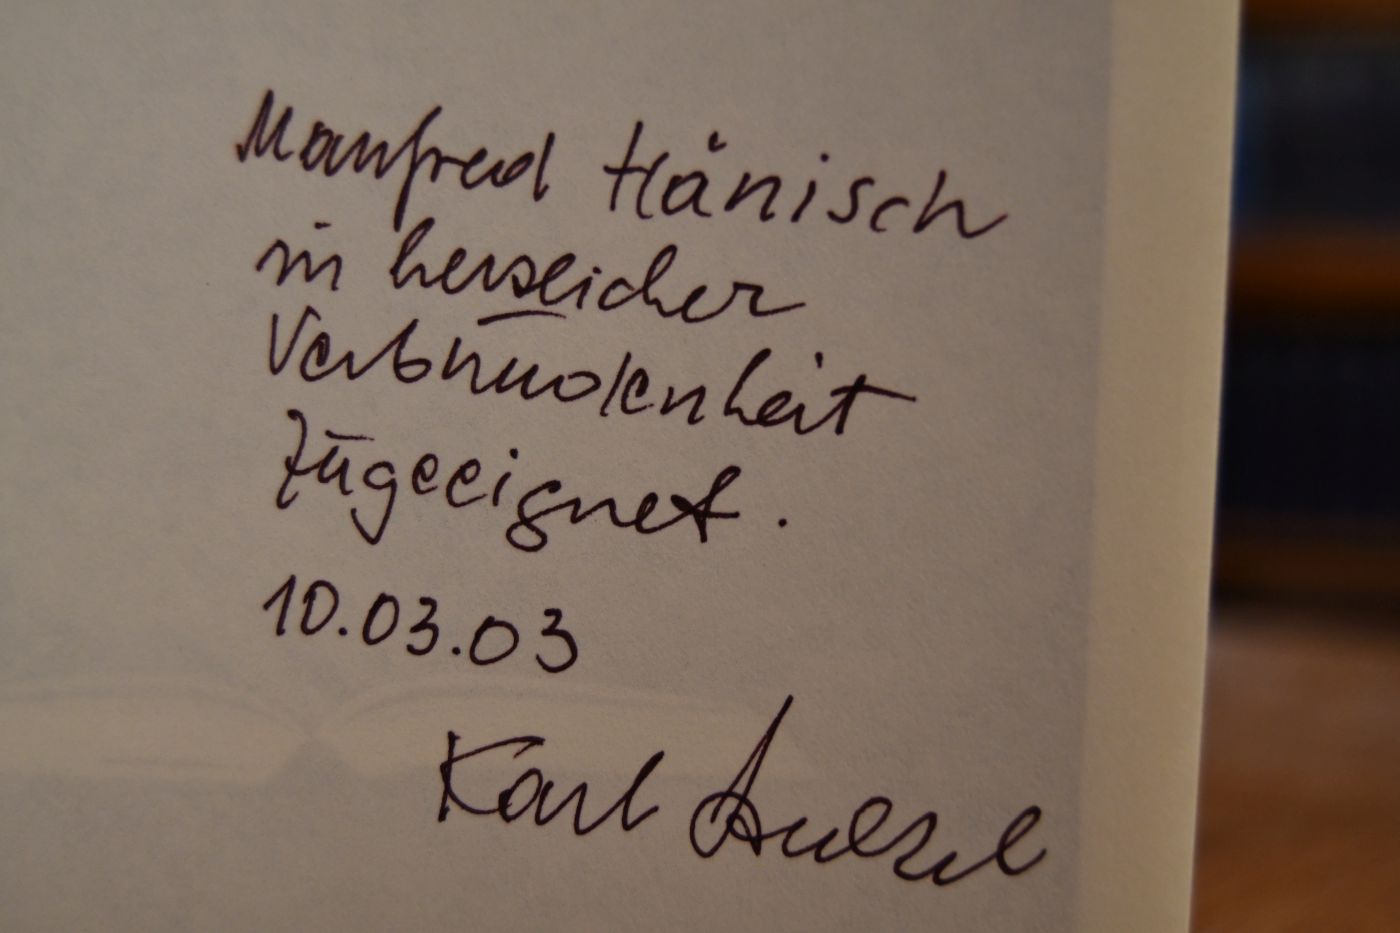 Manfred Hänisch
in herzlicher
Verbundenheit
zugeeignet.
10.03.03
Karl